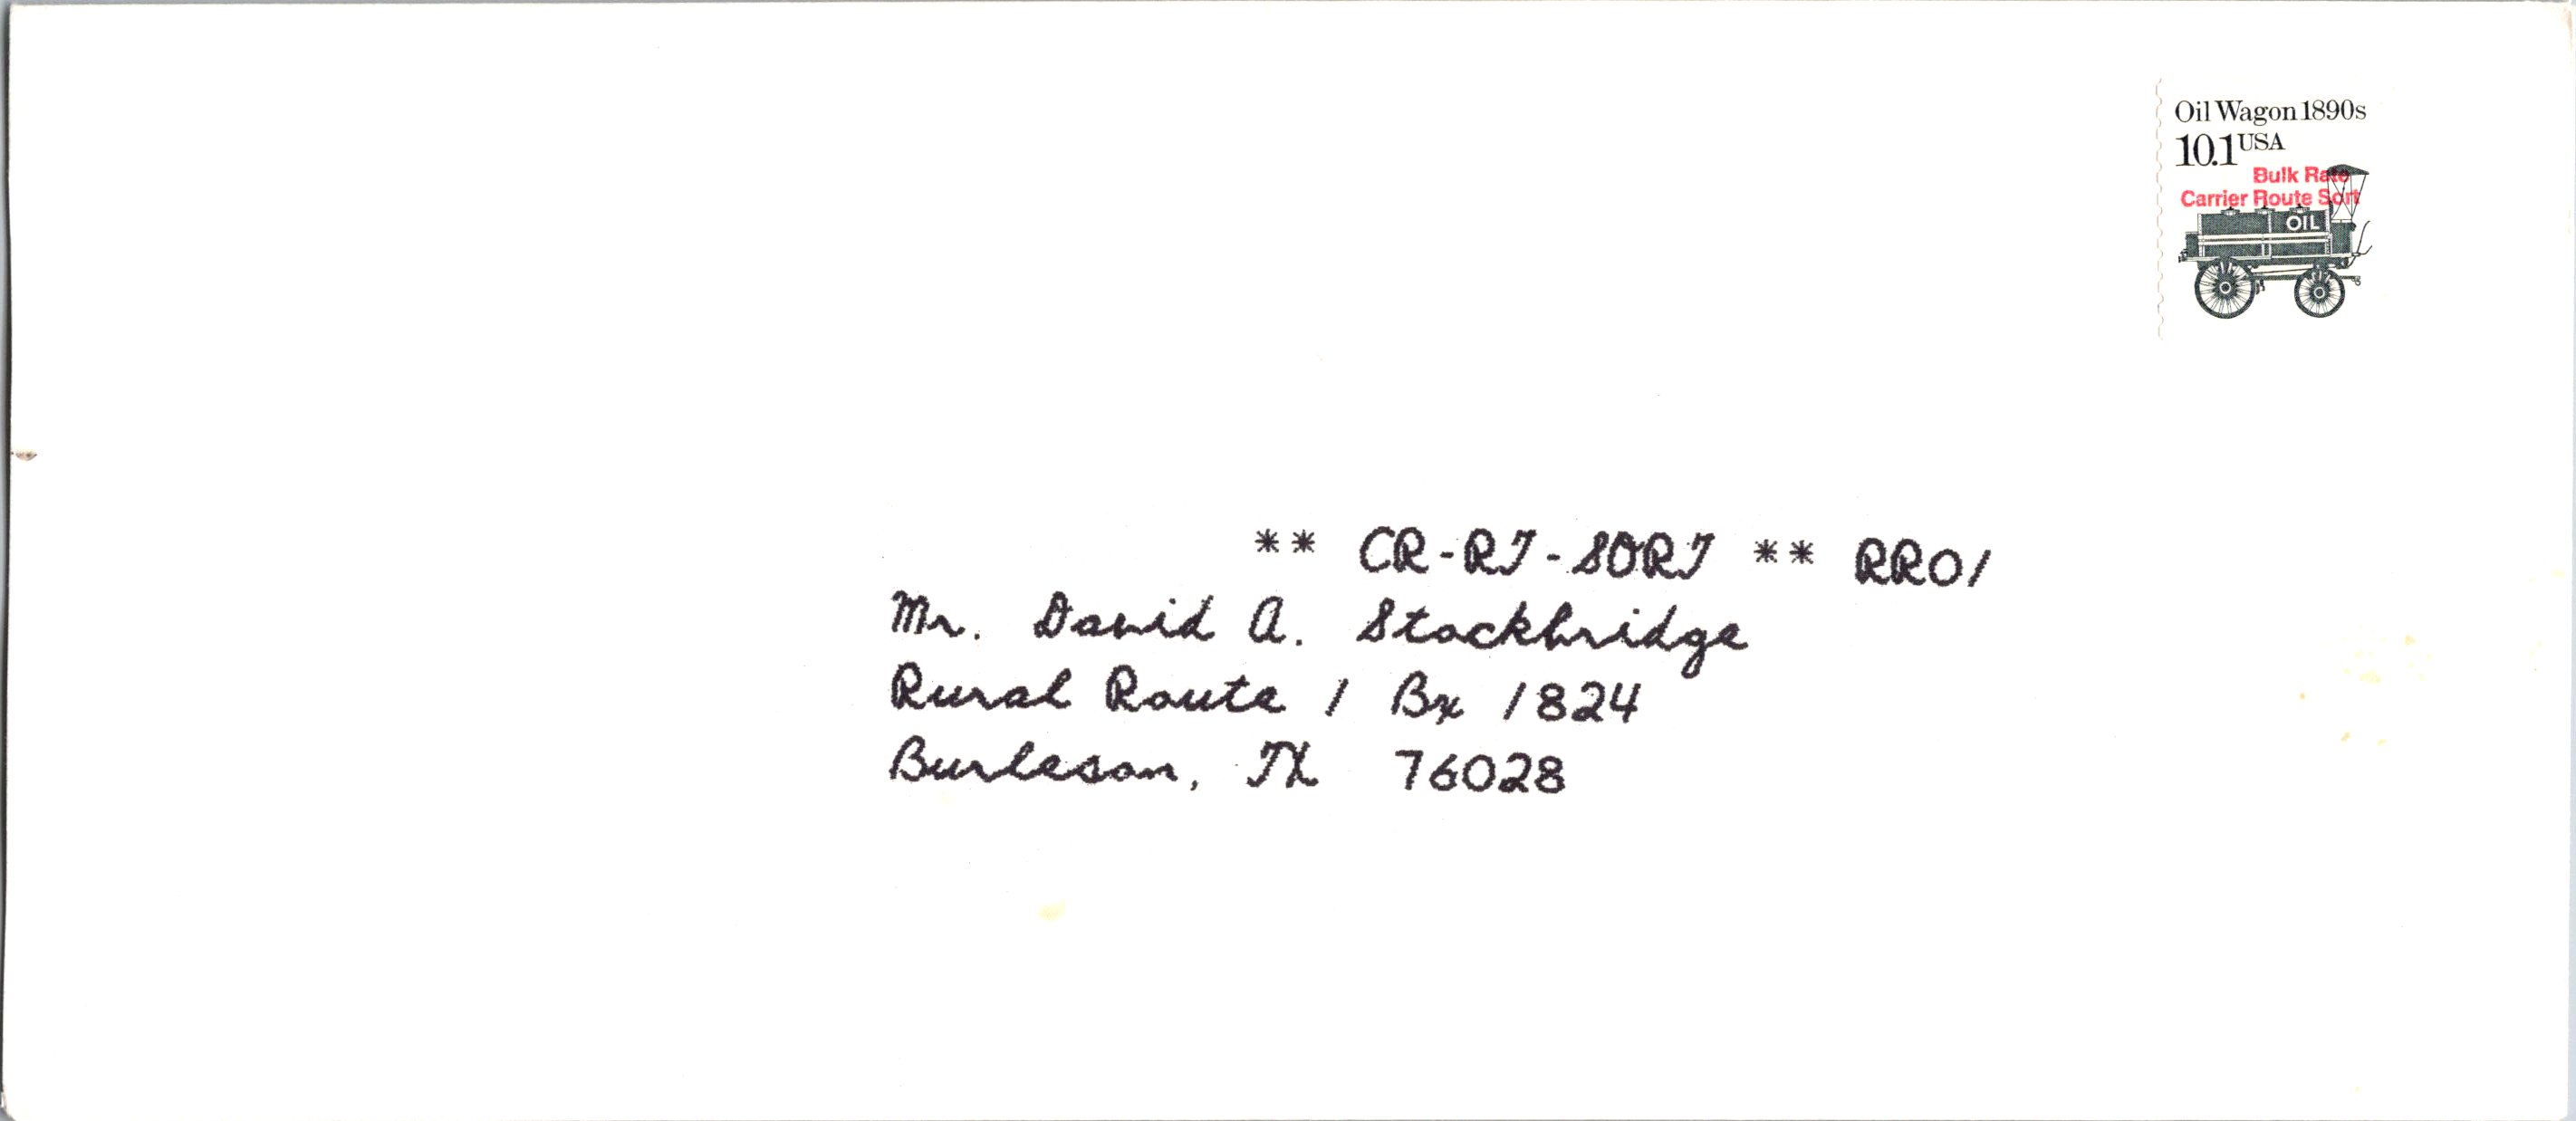 Oil Wagon 1890s
10.1 USA
Bulk Rate
Carrier Route Sort
OIL
** CR-RT-SORT ** RR01
Mr. David A. Stockbridge
Rural Route 1 Bx 1824
Burleson, TX 76028